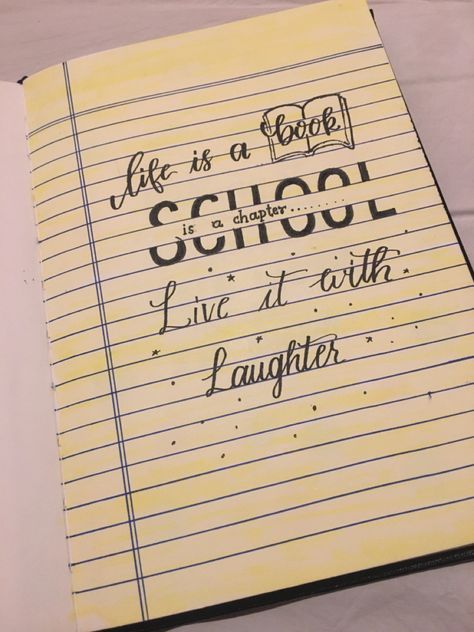 life is a book
SCHOOL
is a chapter.........
Live it with
Laughter